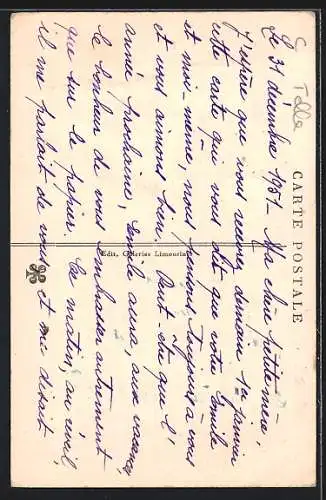 Tulle
CARTE POSTALE
Le 31 décembre 1931_ Ma chère petite mère,
J'espère que vous recevrez demain 1er janvier
cette carte qui vous dit que votre Emile
et moi-même, nous pensons toujours à vous
et vous aimons bien. Peut-être que l'
année prochaine, Emile aura, aux vacances,
le bonheur de vous embrasser autrement
que sur le papier. Ce matin, au réveil,
il me parlait de vous et me disait
Edit. Galeries Limousines